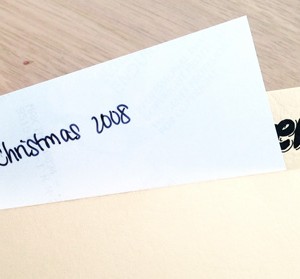 Christmas 2008